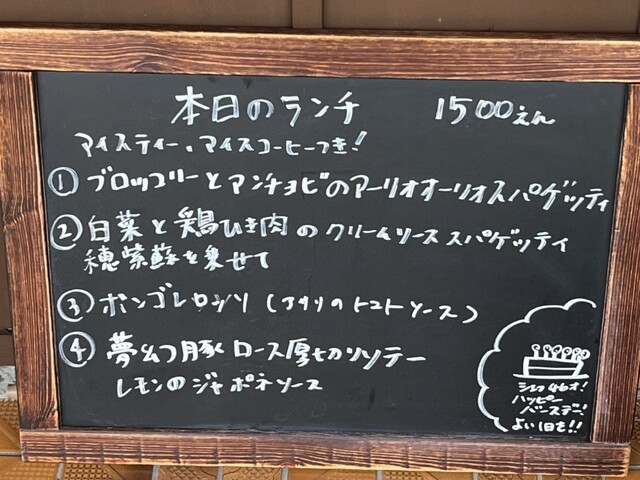 本日のランチ 1500えん
アイスティー、アイスコーヒーつき!
① ブロッコリーとアンチョビのアーリオオーリオスパゲッティ
② 白菜と鶏ひき肉のクリームソース スパゲッティ
穂紫蘇を乗せて
③ ボンゴレロッソ (アサリのトマトソース)
④ 夢幻豚ロース厚切りソテー
レモンのジャポネソース
シェフ46才!
ハッピー
バースデー!
よい1日を!!